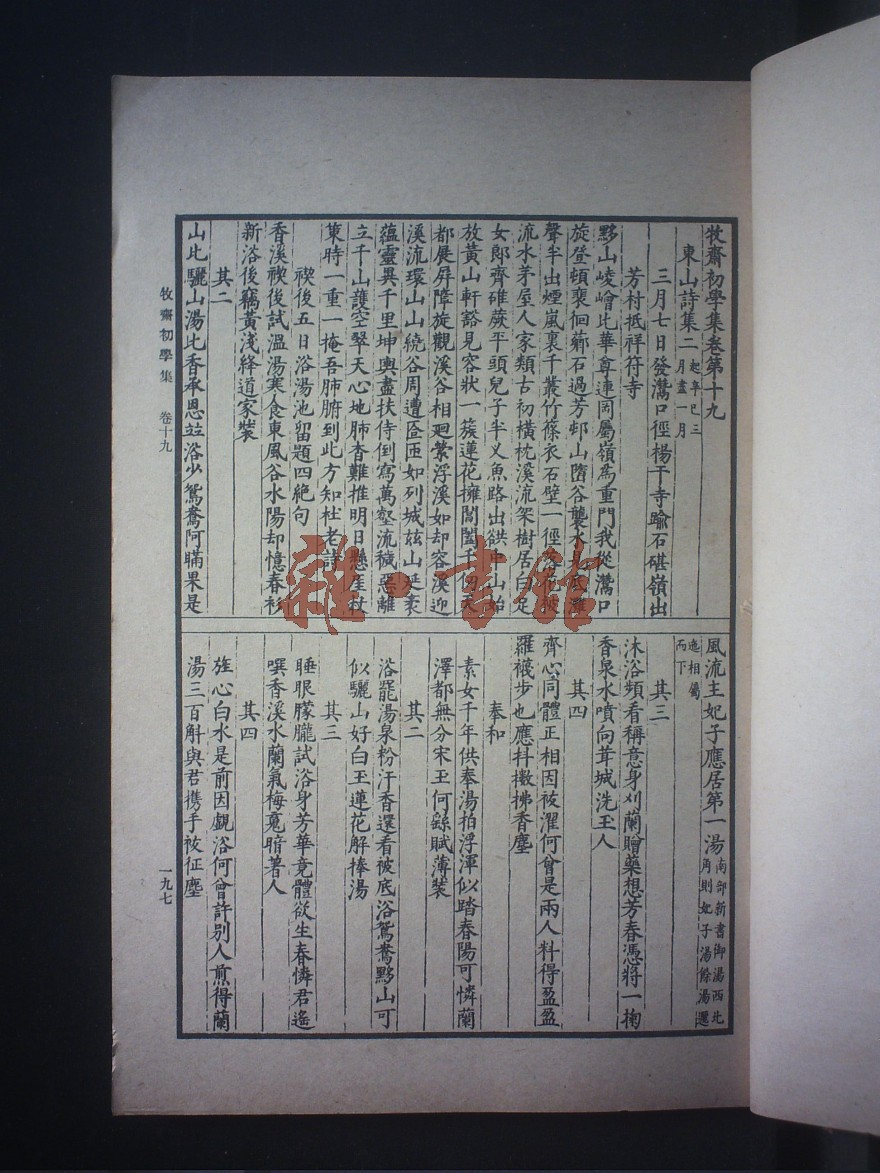 牧齋初學集卷第十九
東山詩集二起辛巳三
月盡一月
三月七日發灊口徑楊干寺踰石碪嶺出
芳村抵祥符寺
黟山崚嶒比華尊連岡屬嶺爲重門我從灊口
旋登頓裹佪薪石過芳邨山嶞谷襲水
聲半出煙嵐裏千叢竹篠衣石壁一徑落
流水茅屋人家類古初橫枕溪流架樹居白足
女郞齊碓蕨平頭兒子半乂魚路出
放黃山軒豁見容狀一簇蓮花擁閶闔千仭天
都展屏障旋觀溪谷相廻縈浮溪如却容溪迎
溪流環山山繞谷周遭匼匝如列城玆山延袤
蘊靈異千里坤輿盡扶侍倒寫萬壑流穢惡離
立千山護空翠天心地肺杳難推明日懸崖杖
策時一重一掩吾肺腑到此方知杜老詩
禊後五日浴湯池留題四絶句
香溪禊後試溫湯寒食東風谷水陽却憶春衫
新浴後竊黃淺絳道家裝
其二
山比驪山湯比香承恩竝浴少鴛鴦阿瞞果是
風流主妃子應居第一湯南部新書御湯西北
角則妃子湯餘湯邐
迤相屬
而下
其三
沐浴頻看稱意身刈蘭贈藥想芳春憑將一掬
香泉水噴向茸城洗玉人
其四
齊心同體正相因祓濯何曾是兩人料得盈盈
羅襪步也應抖擻拂香塵
奉和
素女千年供奉湯拍浮渾似踏春陽可憐蘭
澤都無分宋玉何繇賦薄裝
其二
浴罷湯泉粉汗香還看被底浴鴛鴦黟山可
似驪山好白玉蓮花解捧湯
其三
睡眼朦朧試浴身芳華竟體欲生春憐君遙
噀香溪水蘭氣梅䰟暗著人
其四
旌心白水是前因覷浴何曾許別人煎得蘭
湯三百斛與君攜手祓征塵
牧齋初學集 卷十九
一九七
雜·書館